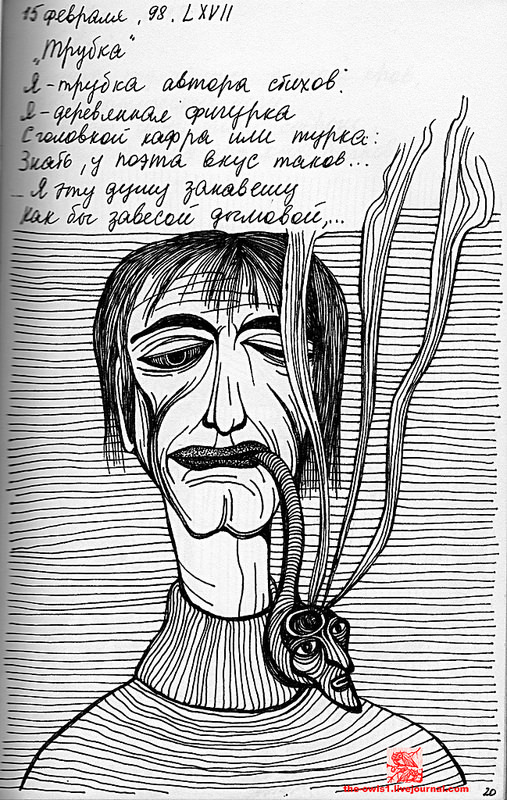 15 февраля, 98. LXVII
„Трубка“
Я-трубка автора стихов.
Я-деревянная фигурка
С головкой кафра или турка:
Знать, у поэта вкус таков...
Я эту душу занавешу
Как бы завесой дымовой,...
the-owls1.livejournal.com
20